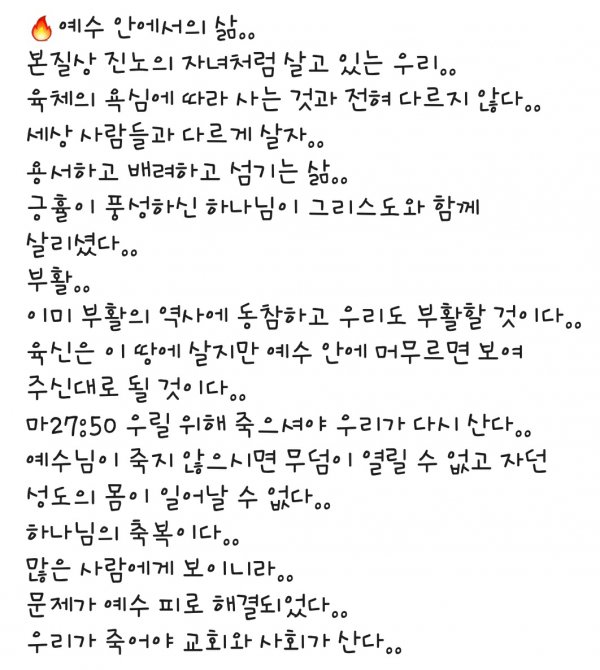 🔥예수 안에서의 삶。。
본질상 진노의 자녀처럼 살고 있는 우리。。
육체의 욕심에 따라 사는 것과 전혀 다르지 않다。。
세상 사람들과 다르게 살자。。
용서하고 배려하고 섬기는 삶。。
긍휼이 풍성하신 하나님이 그리스도와 함께
살리셨다。。
부활。。
이미 부활의 역사에 동참하고 우리도 부활할 것이다。。
육신은 이 땅에 살지만 예수 안에 머무르면 보여
주신대로 될 것이다。。
마27:50 우릴 위해 죽으셔야 우리가 다시 산다。。
예수님이 죽지 않으시면 무덤이 열릴 수 없고 자던
성도의 몸이 일어날 수 없다。。
하나님의 축복이다。。
많은 사람에게 보이니라。。
문제가 예수 피로 해결되었다。。
우리가 죽어야 교회와 사회가 산다。。